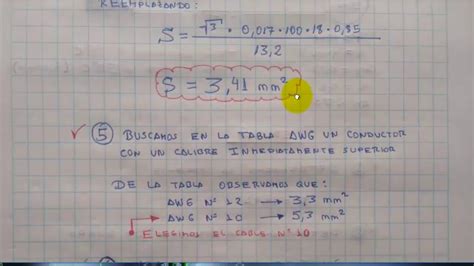 REEMPLAZANDO:
S = √3 · 0,017 · 100 · 18 · 0,85
13,2
S = 3,41 mm²
✓ 5 BUSCAMOS EN LA TABLA AWG UN CONDUCTOR
CON UN CALIBRE INMEDIATAMENTE SUPERIOR
DE LA TABLA OBSERVAMOS QUE:
AWG Nº 12 → 3,3 mm²
AWG Nº 10 → 5,3 mm²
ELEGIMOS EL CABLE Nº 10